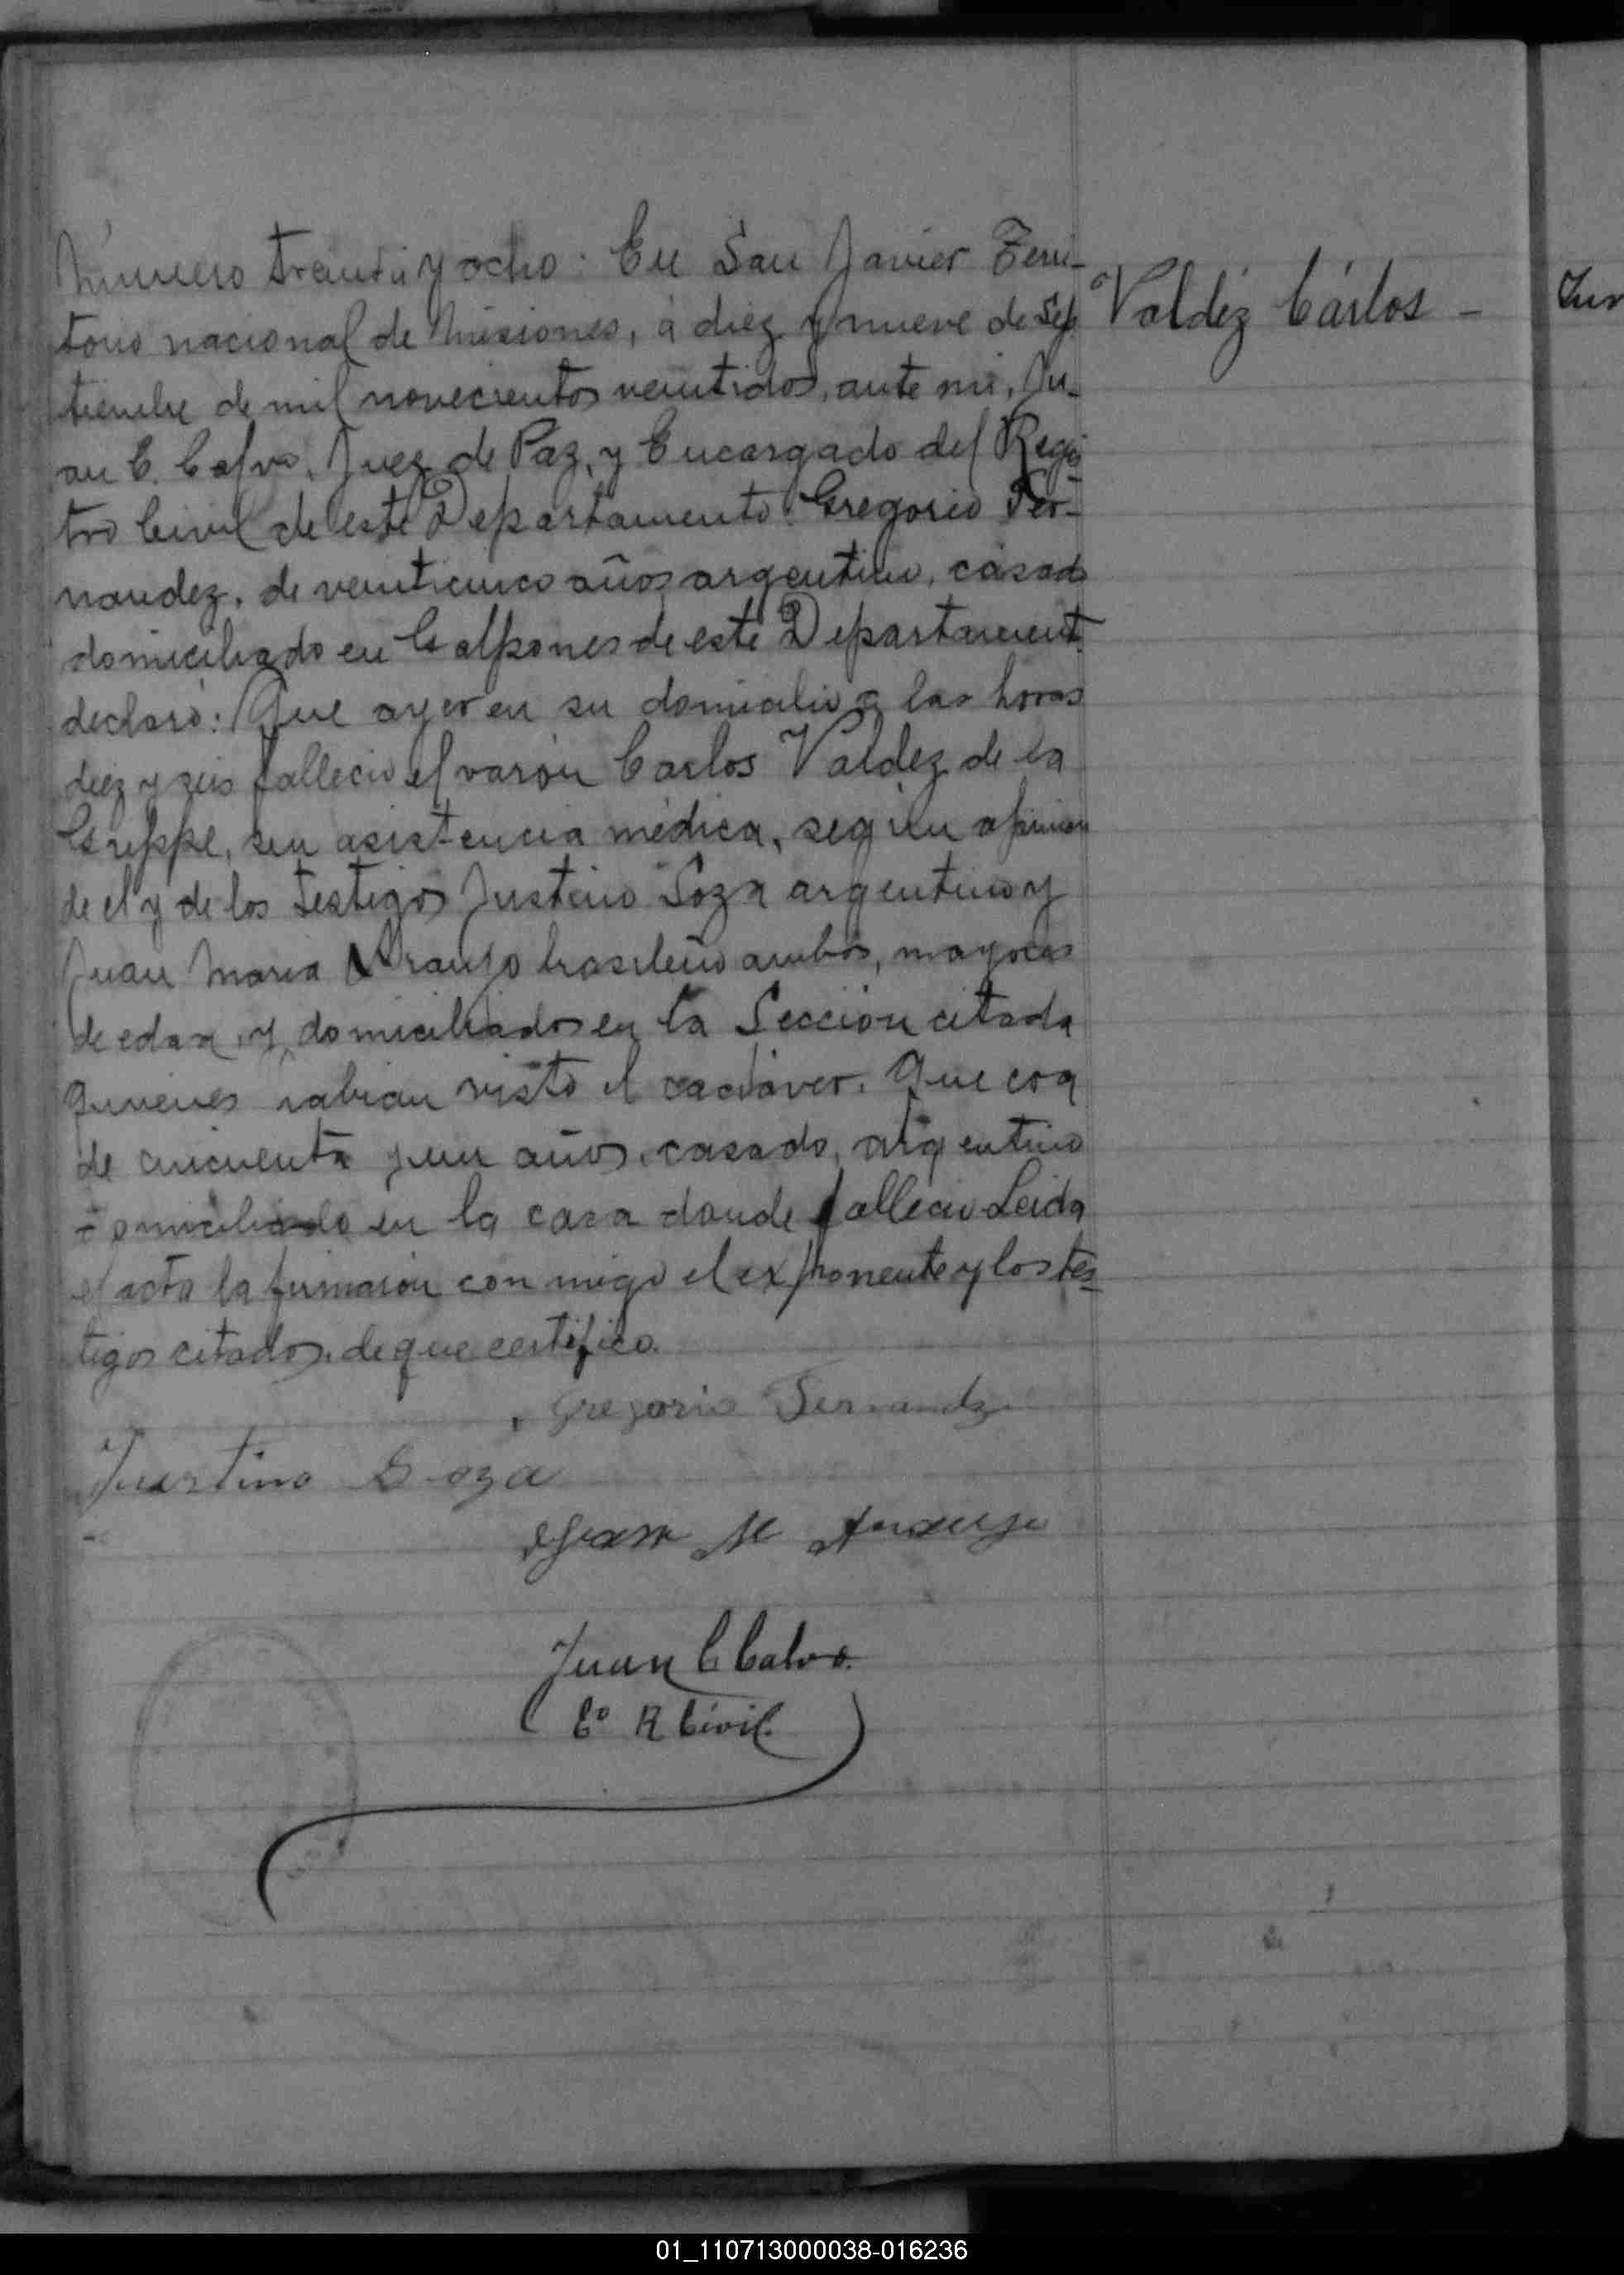 Número treinta y ocho: En San Javier Terri-
torio nacional de Misiones, á diez y nueve de Sep
tiembre de mil novecientos veintidos, ante mi, Ju-
an C. Calvo, Juez de Paz, y Encargado del Regis
tro Civil de este Departamento: Gregorio Fer-
nandez, de veinticinco años argentino, casado
domiciliado en Galpones de este Departament.
declaró: Que ayer en su domicilio a las horas
diez y seis fallecio el varón Carlos Valdez de la
Grippe, sin asistencia médica, según opinion
de el y de los testigos Justino Soza argentino y
Juan Maria Araujo brasileño ambos, mayores
de edad, y domiciliados en la Sección citada
quienes habian visto el cadáver. Que era
de cincuenta y un años, casado, argentino
domiciliado en la casa donde fallecio Leida
el acta la firmaron con migo el exponente y los tes
tigos citados, de que certifico.
Gregorio Fernandz
Justino Soza
Juan M Araujo
Juan C Calvo.
Eº R Civil.
Valdéz Cárlos -
01_110713000038-016236